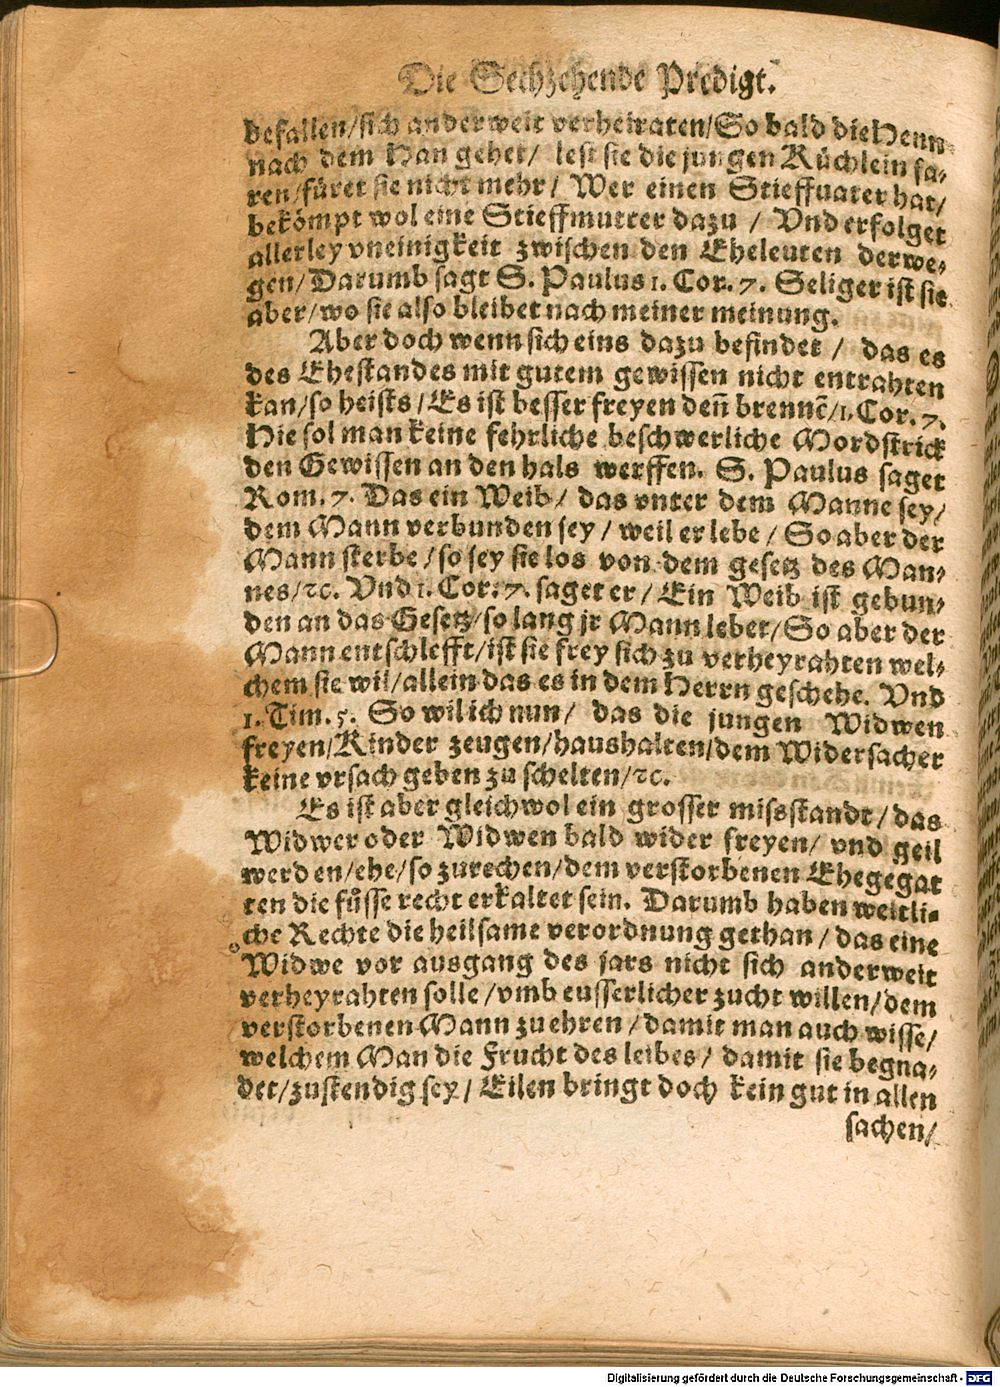 Die Sechzehende Predigt.
befallen/sich anderweit verheiraten/So bald die Henn
nach dem Han gehet/ lest sie die jungen Küchlein fa-
ren/füret sie nicht mehr/ Wer einen Stieffuater hat/
bekömpt wol eine Stieffmutter dazu / Vnd erfolget
allerley vneinigkeit zwischen den Eheleuten derwe-
gen/ Darumb sagt S. Paulus 1. Cor. 7. Seliger ist sie
aber/wo sie also bleibet nach meiner meinung.
Aber doch wenn sich eins dazu befindet / das es
des Ehestandes mit gutem gewissen nicht entrahten
kan/so heists/Es ist besser freyen deñ brennẽ/1. Cor. 7.
Hie sol man keine fehrliche beschwerliche Mordstrick
den Gewissen an den hals werffen. S. Paulus saget
Rom. 7. Das ein Weib/ das vnter dem Manne sey/
dem Mann verbunden sey / weil er lebe / So aber der
Mann sterbe/so sey sie los von dem gesetz des Man-
nes/ꝛc. Vnd 1. Cor. 7. saget er/ Ein Weib ist gebun-
den an das Gesetz/so lang jr Mann lebet/So aber der
Mann entschlefft/ist sie frey sich zu verheyrahten wel-
chem sie wil/allein das es in dem Herrn geschehe. Vnd
1. Tim. 5. So wil ich nun/ das die jungen Widwen
freyen/Kinder zeugen/haushalten/dem Widersacher
keine vrsach geben zu schelten/ꝛc.
Es ist aber gleichwol ein grosser missstandt/das
Widwer oder Widwen bald wider freyen/ vnd geil
werden/ehe/so zurechen/dem verstorbenen Ehegegat
ten die füsse recht erkaltet sein. Darumb haben weltli-
che Rechte die heilsame verordnung gethan / das eine
Widwe vor ausgang des jars nicht sich anderweit
verheyrahten solle /vmb eusserlicher zucht willen/dem
verstorbenen Mann zu ehren / damit man auch wisse/
welchem Man die Frucht des leibes/ damit sie begna-
det/zustendig sey/ Eilen bringt doch kein gut in allen
sachen/
Digitalisierung gefördert durch die Deutsche Forschungsgemeinschaft - DFG